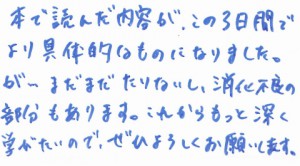 本で読んだ内容が、この3日間で
より具体的なものになりました。
が〜まだまだたりないし、消化不良の
部分もあります。これからもっと深く
学びたいので、ぜひよろしくお願いします。